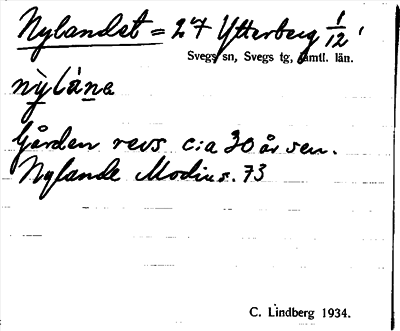 Nylandet = 2⁴7 Ytterberg 1/12
Svegs sn, Svegs tg, Jämtl. län.
nỳlàna
Gården revs c:a 30 år sen.
Nylande Modin s. 73
C. Lindberg 1934.